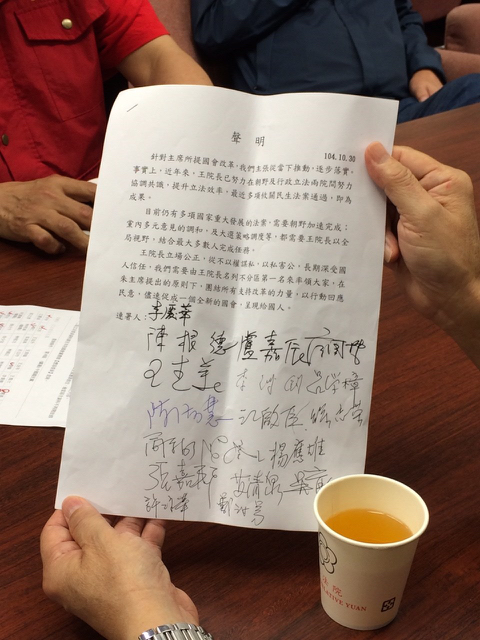 聲 明
104.10.30
針對主席所提國會改革，我們主張從當下推動，逐步落實。
事實上，近年來，王院長已努力在朝野及行政立法兩院間努力
協調共識，提升立法效率，最近多項攸關民生法案通過，即為
成果。
目前仍有多項國家重大發展的法案，需要朝野加速完成；
黨內多元意見的調和、及大選策略調度等，都需要王院長以全
局視野，結合最大多數人完成任務。
王院長立場公正，從不以權謀私、以私害公，長期深受國
人信任，我們需要由王院長名列不分區第一名來率領大家，在
朱主席提出的原則下，團結所有支持改革的力量，以行動回應
民意，儘速促成一個全新的國會，呈現給國人。
連署人：李慶華
陳根德 盧嘉辰
呂學樟
江啟臣
楊應雄
張嘉郡 黃清泉
法院
ATIVE YUAN